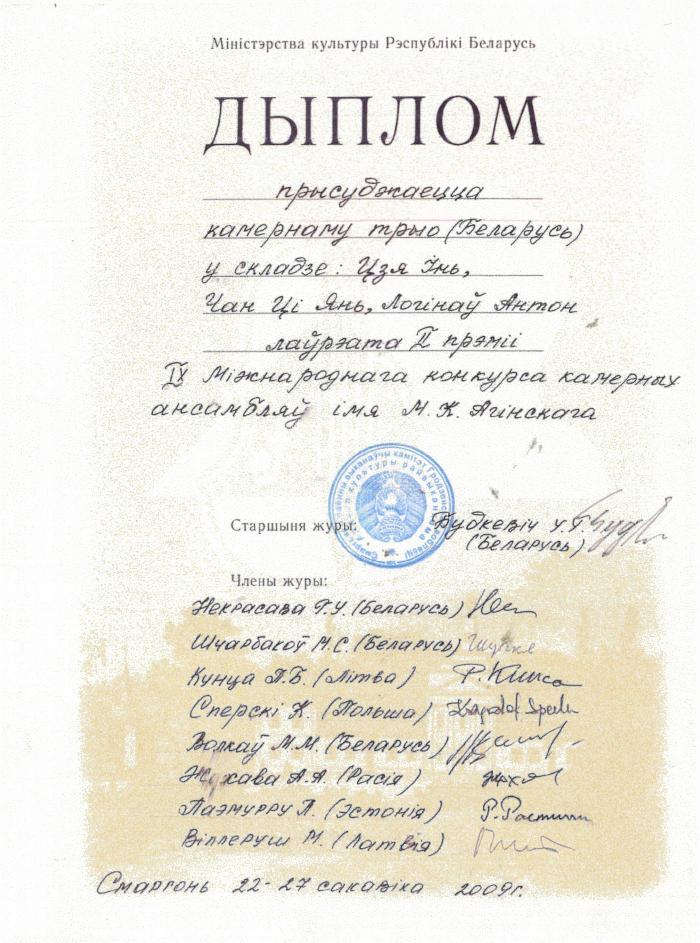 Міністэрства культуры Рэспублікі Беларусь
ДЫПЛОМ
прысуджаецца
камернаму трыо (Беларусь)
у складзе: Цзя Інь,
Чан Ці Янь, Логінаў Антон
лаўрэата II прэміі
IX Міжнароднага конкурса камерных
ансамбляў імя М. К. Агінскага
Старшыня журы: Будкевіч У.Г.
(Беларусь)
Члены журы:
Некрасава Г.У. (Беларусь)
Шчарбакоў М.С. (Беларусь)
Кунца П.Б. (Літва) P. Kunca
Сперскі К. (Польша)
Волкаў М.М. (Беларусь)
Жухава А.А. (Расія)
Паэмурру П. (Эстонія)
Віллеруш М. (Латвія)
Смаргонь 22-27 сакавіка 2009г.